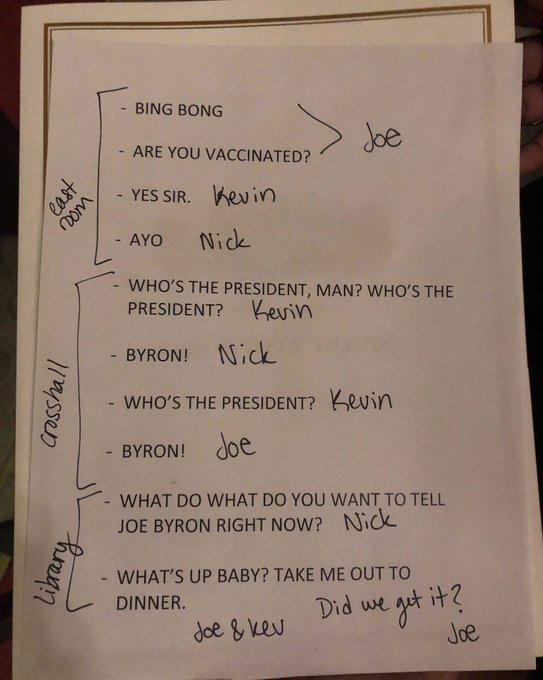 - BING BONG
- ARE YOU VACCINATED? Joe
- YES SIR. Kevin
- AYO Nick
east room
- WHO'S THE PRESIDENT, MAN? WHO'S THE
PRESIDENT? Kevin
- BYRON! Nick
- WHO'S THE PRESIDENT? Kevin
- BYRON! Joe
crosshall
- WHAT DO WHAT DO YOU WANT TO TELL
JOE BYRON RIGHT NOW? Nick
- WHAT'S UP BABY? TAKE ME OUT TO
DINNER.
Joe & Kev
Did we get it?
Joe
Library